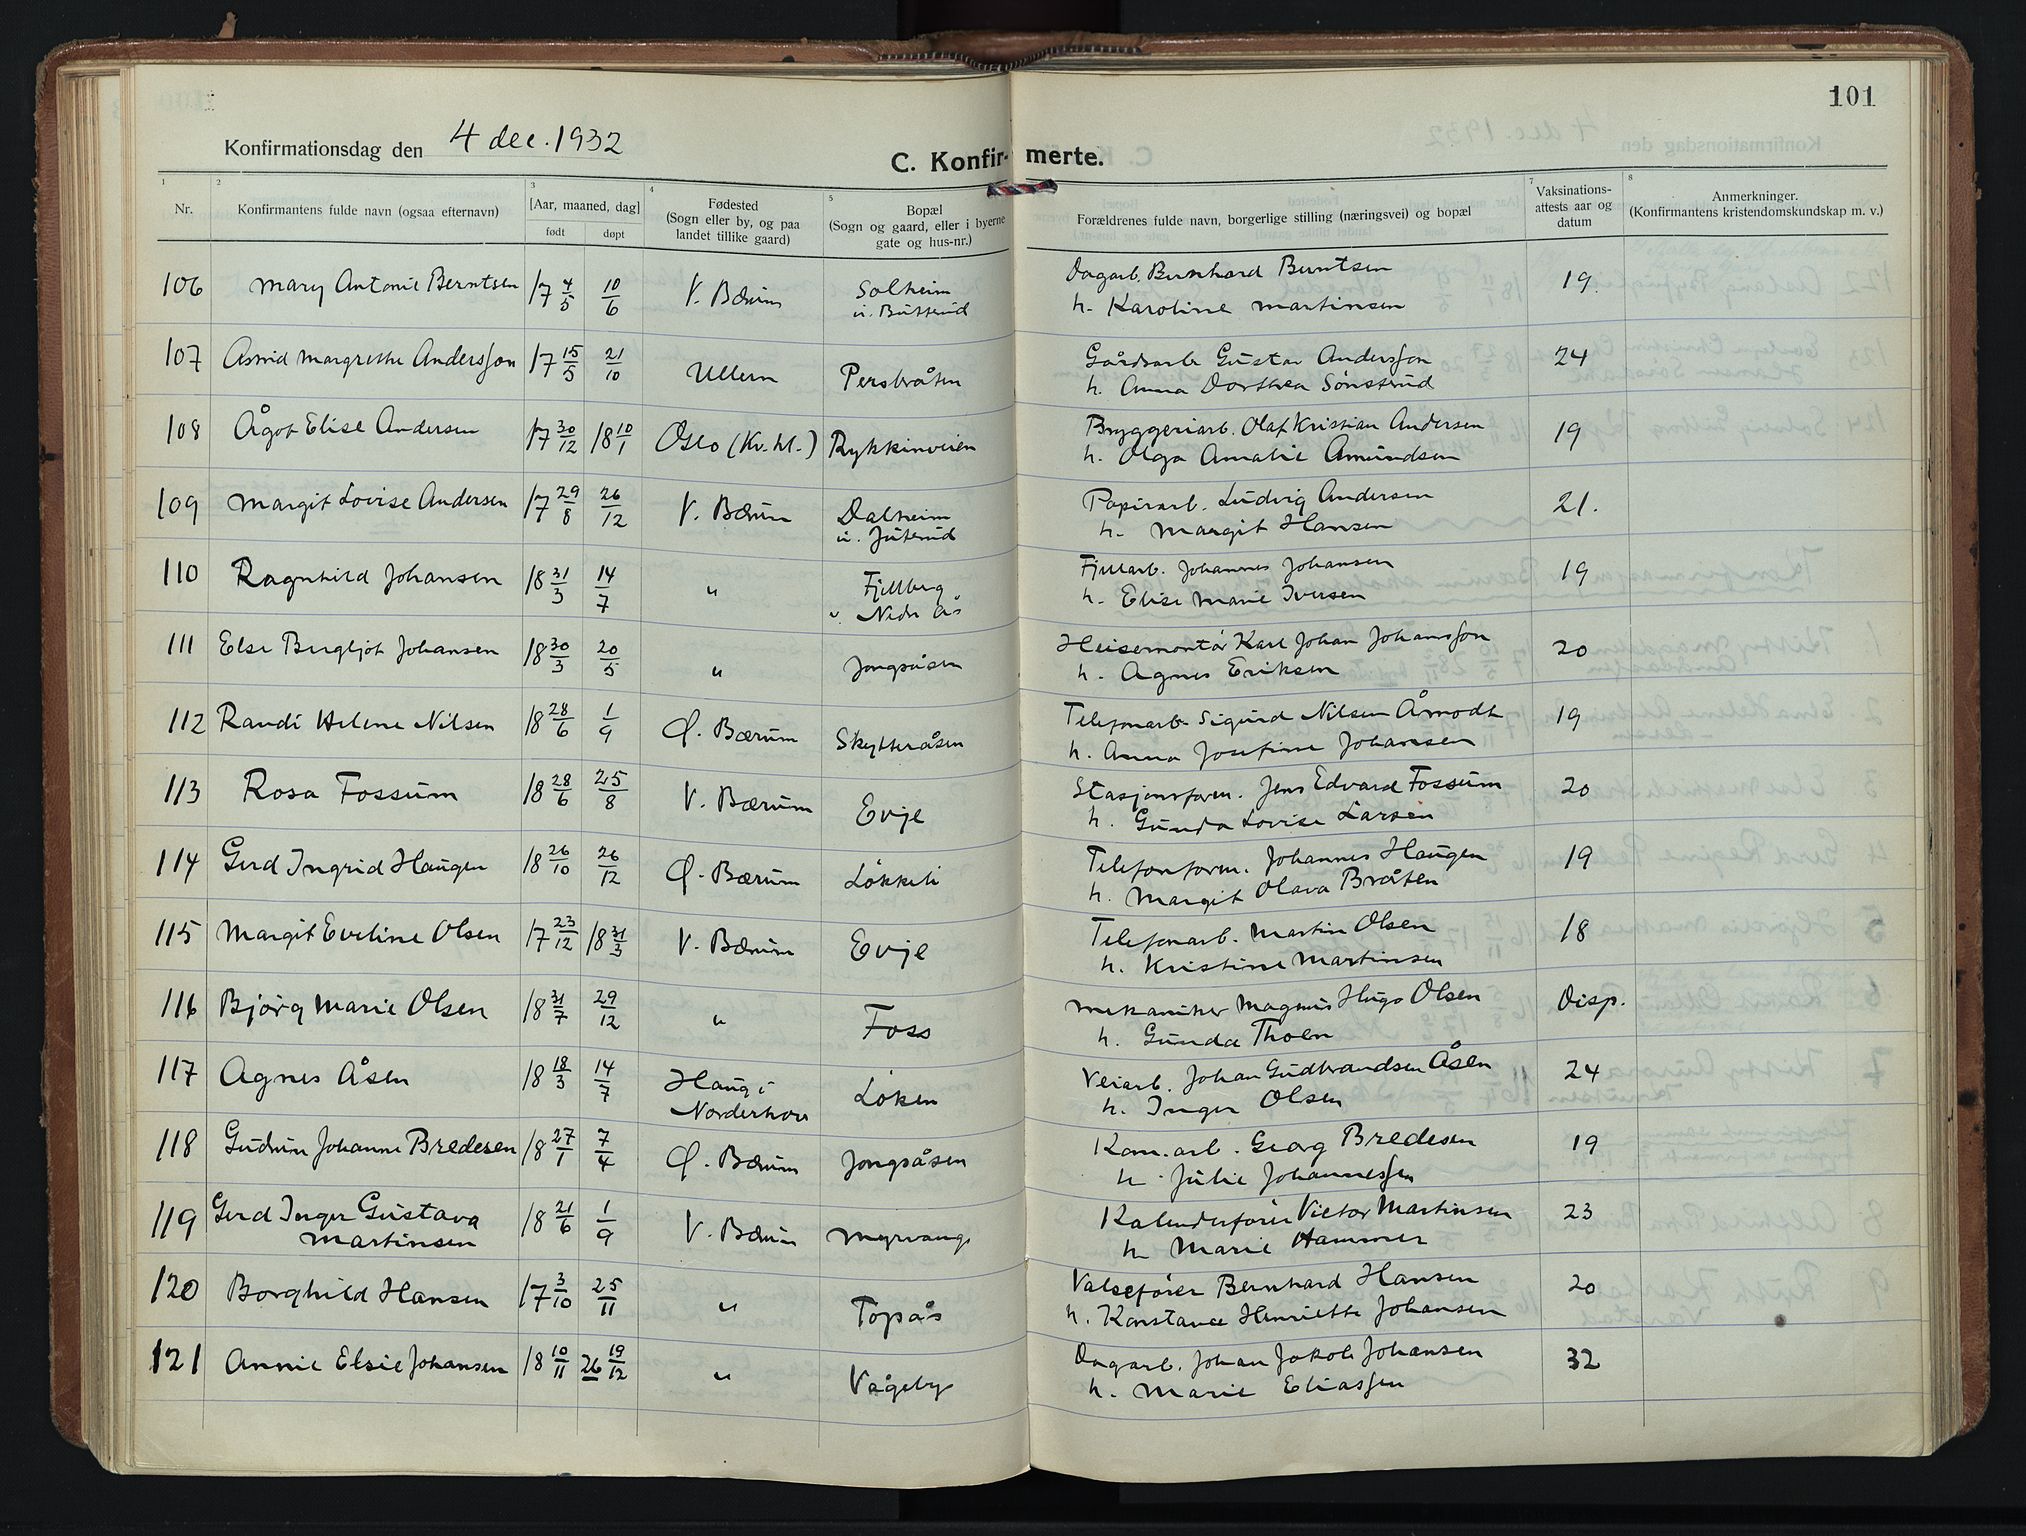 101
Konfirmationsdag den 4 dec. 1932
C. Konfirmerte.
1 2 3 4 5 7 8
Nr. Konfirmantens fulde navn (ogsaa efternavn) [Aar, maaned, dag] født døpt Fødested (Sogn eller by, og paa landet tillike gaard) Bopæl (Sogn og gaard, eller i byerne gate og hus-nr.) Forældrenes fulde navn, borgerlige stilling (næringsvei) og bopæl Vaksinations-attests aar og datum Anmerkninger. (Konfirmantens kristendomskundskap m. v.)
106 Mary Antonie Berntsen 17 4/5 10/6 V. Bærum Solheim u. Butterud Dagarb. Bernhard Berntsen 19.
h. Karoline Martinsen
107 Astrid Margrethe Andersson 17 15/5 21/10 Ullern Persbråten Gårdsarb. Gustav Andersson 24
h. Anna Dorthea Sønsterud
108 Ågot Elise Andersen 17 30/12 18 10/1 Oslo (Kv. kl.) Rykkinveien Bryggeriarb. Olaf Kristian Andersen 19
h. Olga Amalie Amundsen
109 Margit Lovise Andersen 17 29/8 26/12 V. Bærum Dalheim u. Juterud Papirarb. Ludvig Andersen 21.
h. Margit Hansen
110 Ragnhild Johansen 18 31/3 14/7 " Fjellberg u. Nedre Ås Fjellarb. Johannes Johansen 19
h. Elise Marie Iversen
111 Else Bergljot Johansen 18 30/3 20/5 " Jongsåsen Heisemontør Karl Johan Johansson 20
h. Agnes Eriksen
112 Randi Helene Nilsen 18 28/6 1/9 Ø. Bærum Skytteråsen Telefonarb. Sigurd Nilsen Åmodt 19
h. Anna Josefine Johansen
113 Rosa Fossum 18 28/6 25/8 V. Bærum Evje Stasjonsform. Jens Edvard Fossum 20
h. Gunda Lovise Larsen
114 Gerd Ingrid Haugen 18 26/10 26/12 Ø. Bærum Løkkeli Telefonform. Johannes Haugen 19
h. Margit Olava Bråten
115 Margit Eveline Olsen 17 23/12 18 31/3 V. Bærum Evje Telefonarb. Martin Olsen 18
h. Kristine Martinsen
116 Bjørg Marie Olsen 18 31/7 29/12 " Foss Mekaniker Magnus Hugo Olsen Disp.
h. Gunda Thoen
117 Agnes Åsen 18 18/3 14/7 Haug i Norderhov Løken Veiarb. Johan Gudbrandsen Åsen 24
h. Inger Olsen
118 Gudrun Johanne Bredesen 18 27/1 7/4 Ø. Bærum Jongsåsen Kom. arb. Georg Bredesen 19
h. Julie Johannessen
119 Gerd Inger Gustava Martinsen 18 21/6 1/9 V. Bærum Myrvang Kalenderfører Victor Martinsen 23
h. Marie Hammer
120 Borghild Hansen 17 3/10 25/11 " Topås Valsefører Bernhard Hansen 20
h. Konstance Henriette Johansen
121 Annie Elsie Johansen 18 10/11 26 19/12 " Vågeby Dagarb. Johan Jakob Johansen 32
h. Marie Eliassen